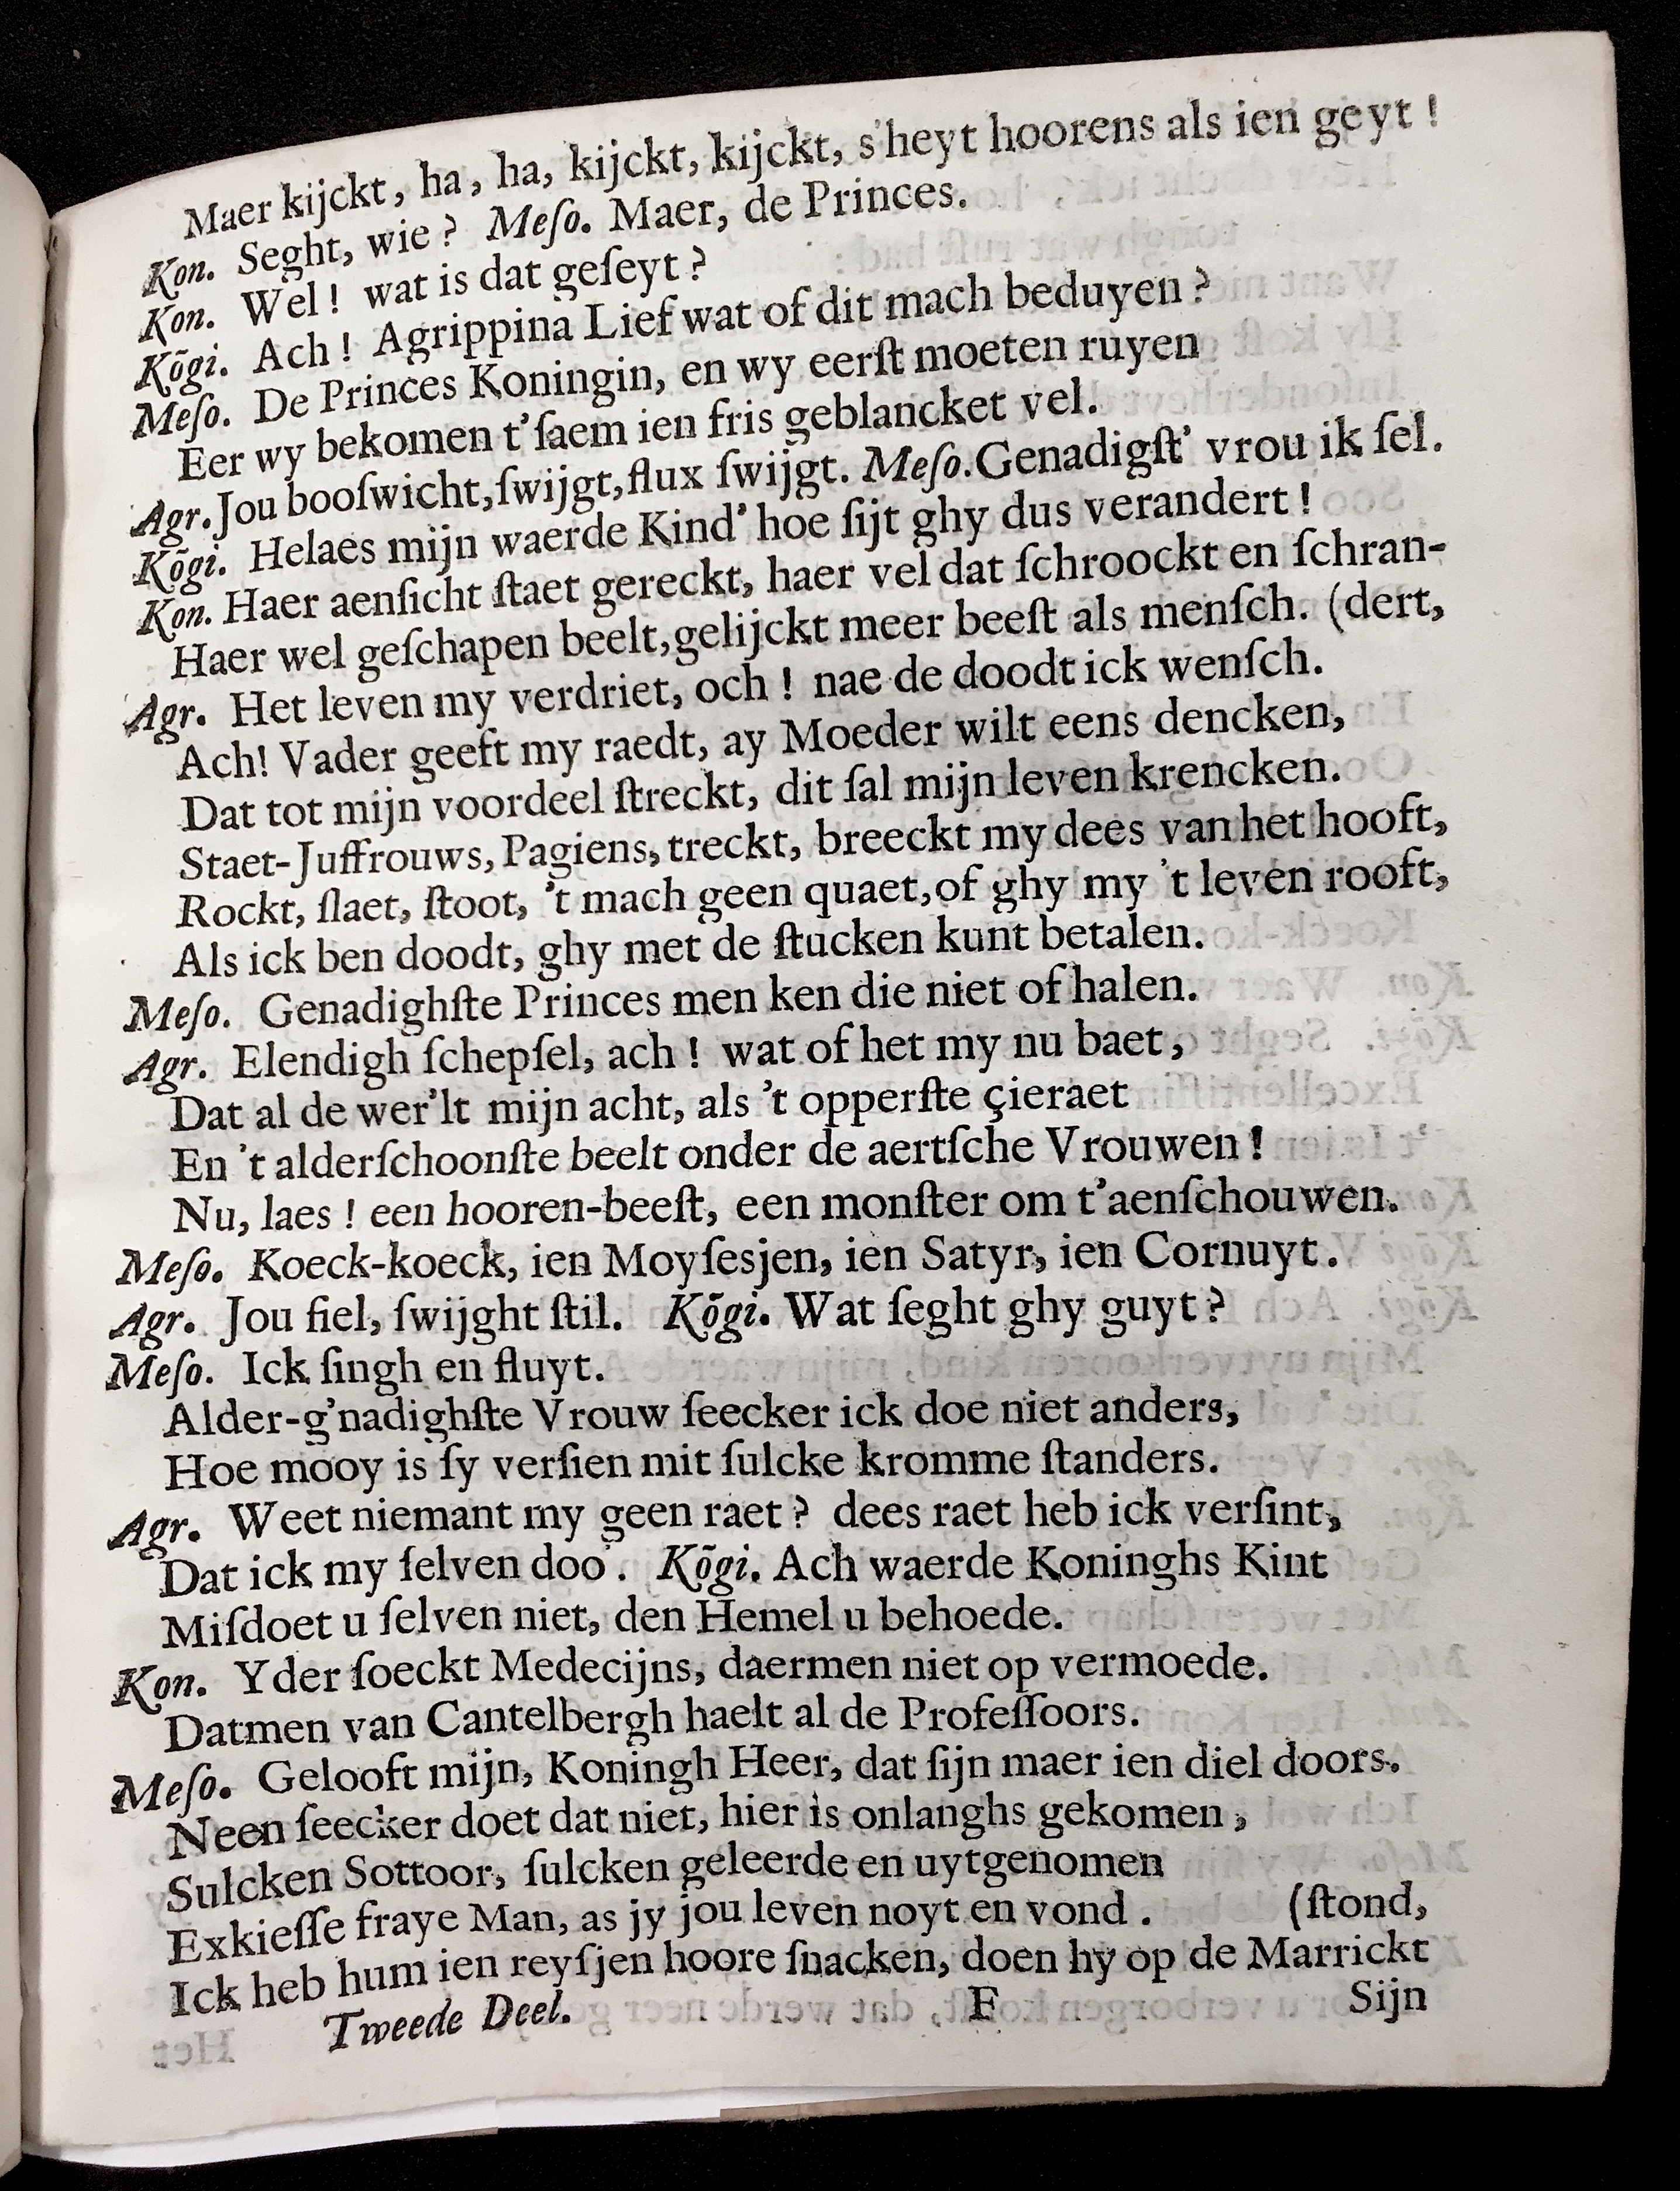 Maer kijckt, ha, ha, kijckt, kijckt, s'heyt hoorens als ien geyt !
Kon. Seght, wie ? Meſo. Maer, de Princes.
Kon. Wel ! wat is dat geſeyt ?
Kõgi. Ach ! Agrippina Lief wat of dit mach beduyen ?
Meſo. De Princes Koningin, en wy eerſt moeten ruyen
Eer wy bekomen t'ſaem ien fris geblancket vel.
Agr. Jou booſwicht, ſwijgt, flux ſwijgt. Meſo. Genadigſt' vrou ik ſel.
Kõgi. Helaes mijn waerde Kind' hoe ſijt ghy dus verandert !
Kon. Haer aenſicht ſtaet gereckt, haer vel dat ſchroockt en ſchran-
Haer wel geſchapen beelt, gelijckt meer beeſt als menſch. (dert,
Agr. Het leven my verdriet, och ! nae de doodt ick wenſch.
Ach! Vader geeft my raedt, ay Moeder wilt eens dencken,
Dat tot mijn voordeel ſtreckt, dit ſal mijn leven krencken.
Staet-Juffrouws, Pagiens, treckt, breeckt my dees van het hooft,
Rockt, ſlaet, ſtoot, 't mach geen quaet, of ghy my 't leven rooft,
Als ick ben doodt, ghy met de ſtucken kunt betalen.
Meſo. Genadighſte Princes men ken die niet of halen.
Agr. Elendigh ſchepſel, ach ! wat of het my nu baet,
Dat al de wer'lt mijn acht, als 't opperſte çieraet
En 't alderſchoonſte beelt onder de aertſche Vrouwen !
Nu, laes ! een hooren-beeſt, een monſter om t'aenſchouwen.
Meſo. Koeck-koeck, ien Moyſesjen, ien Satyr, ien Cornuyt.
Agr. Jou fiel, ſwijght ſtil. Kõgi. Wat ſeght ghy guyt ?
Meſo. Ick ſingh en fluyt.
Alder-g'nadighſte Vrouw ſeecker ick doe niet anders,
Hoe mooy is ſy verſien mit ſulcke kromme ſtanders.
Agr. Weet niemant my geen raet ? dees raet heb ick verſint,
Dat ick my ſelven doo'. Kõgi. Ach waerde Koninghs Kint
Miſdoet u ſelven niet, den Hemel u behoede.
Kon. Yder ſoeckt Medecijns, daermen niet op vermoede.
Datmen van Cantelbergh haelt al de Profeſſoors.
Meſo. Gelooft mijn, Koningh Heer, dat ſijn maer ien diel doors.
Neen ſeecker doet dat niet, hier is onlanghs gekomen,
Sulcken Sottoor, ſulcken geleerde en uytgenomen
Exkieſſe fraye Man, as jy jou leven noyt en vond. (ſtond,
Ick heb hum ien reyſjen hoore ſnacken, doen hy op de Marrickt
Tweede Deel. F Sijn